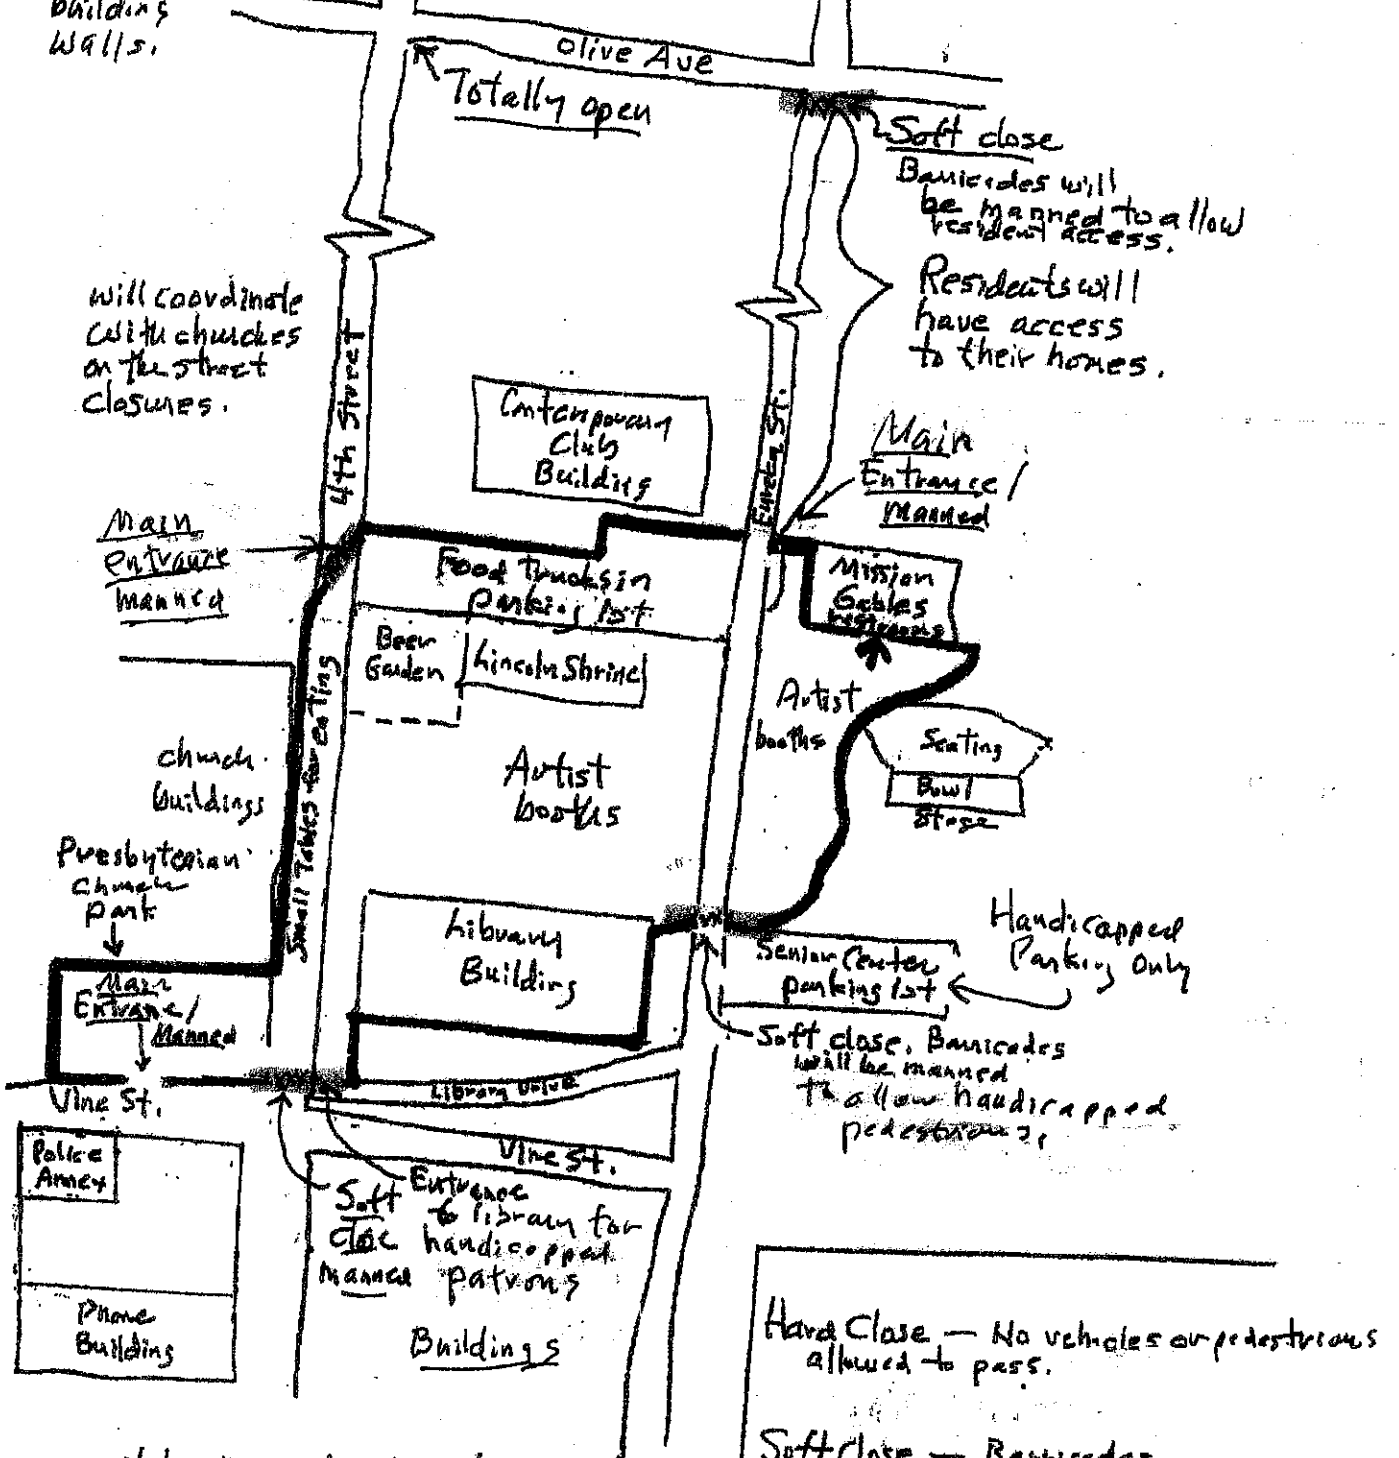 building
walls.
Olive Ave
Totally open
Soft close
Barricades will
be manned to allow
resident access.
Residents will
have access
to their homes.
will coordinate
with churches
on the street
closures.
4th Street
Contemporary
Club
Building
Eureka St.
Main
Entrance/
Manned
Main
entrance
manned
Food Trucks in
parking lot
Mission
Gables
restrooms
Beer
Garden
Lincoln Shrine
Small Tables for eating
Artist
booths
Seating
Bowl
Stage
church
buildings
Artist
booths
Presbyterian
Church
park
Library
Building
Handicapped
Parking Only
Senior Center
parking lot
Main
Entrance/
Manned
Soft close. Barricades
will be manned
to allow handicapped
pedestrians.
Vine St.
Library Drive
Vine St.
Police
Annex
Entrance
to library for
handicapped
patrons
Soft
close
manned
Phone
Building
Buildings
Hard Close — No vehicles or pedestrians
allowed to pass.
Soft Close — Barricades